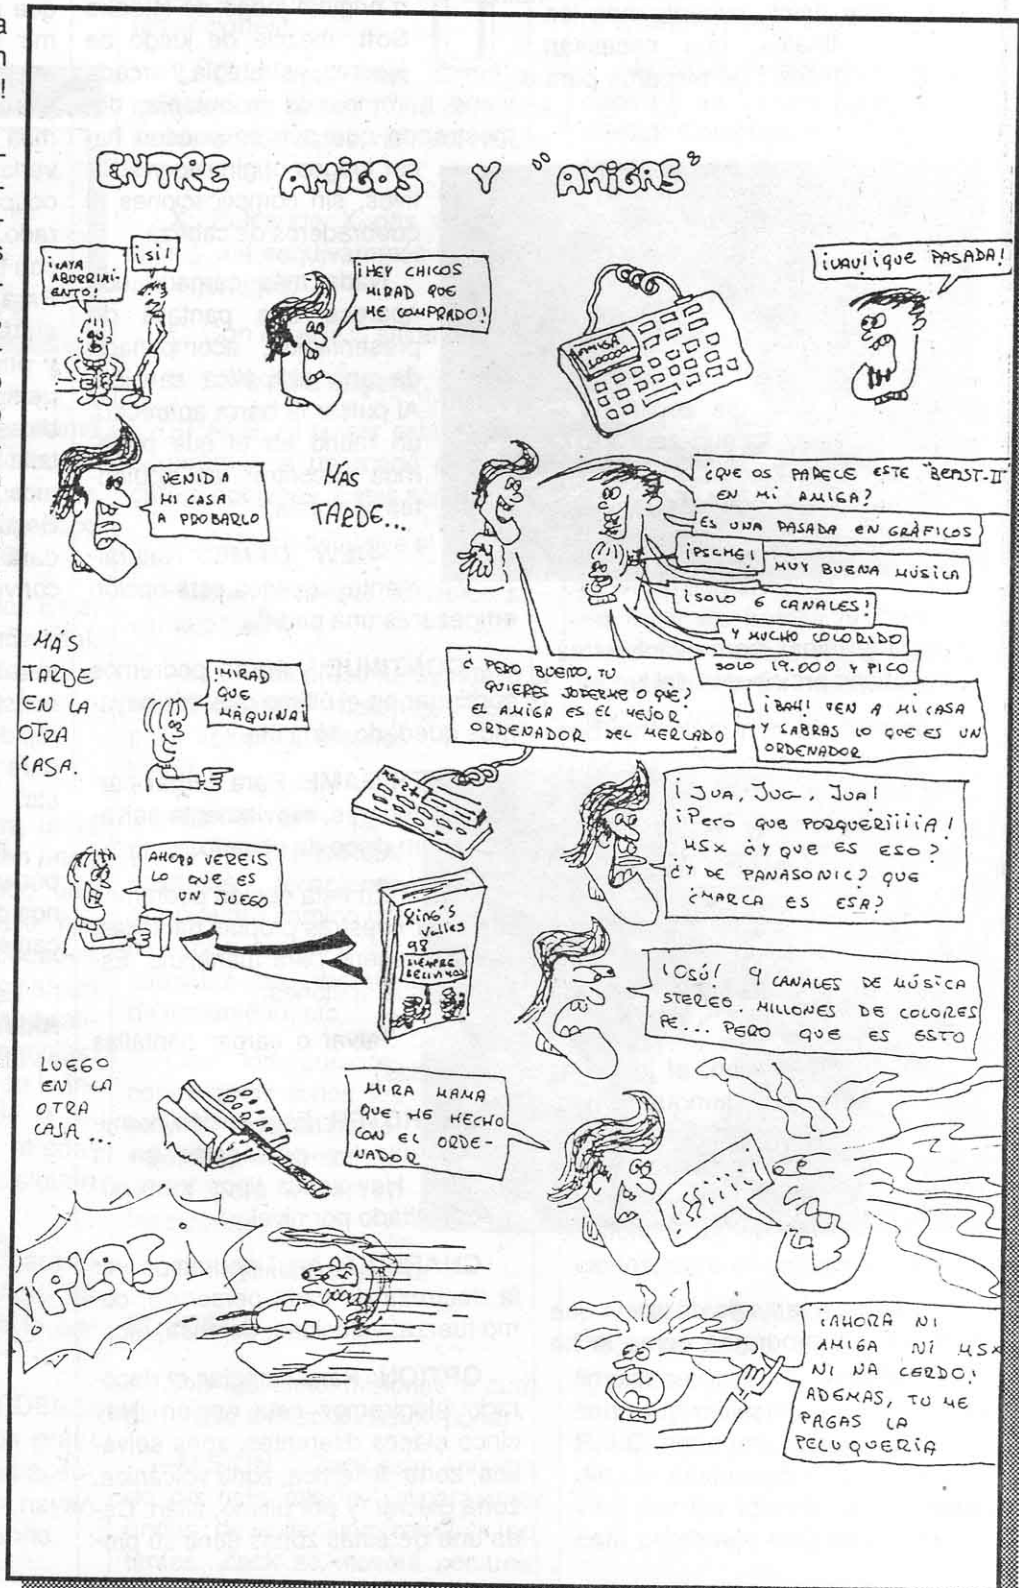 ENTRE AMIGOS Y "AMIGAS"
¡VAYA
ABURRIMI-
ENTO!
¡SI!
¡HEY CHICOS
MIRAD QUE
ME COMPRADO!
AMIGA
¡UAU! ¡QUE PASADA!
VENID A
MI CASA
A PROBARLO
MÁS
TARDE...
¿QUE OS PARECE ESTE "BEAST-II"
EN MI AMIGA?
ES UNA PASADA EN GRÁFICOS
¡PSCHE!
MUY BUENA MÚSICA
¡SOLO 6 CANALES!
Y MUCHO COLORIDO
SOLO 19.000 Y PICO
¿PERO BUENO, TU
QUIERES JODERME O QUE?
EL AMIGA ES EL MEJOR
ORDENADOR DEL MERCADO
¡BAH! VEN A MI CASA
Y SABRAS LO QUE ES UN
ORDENADOR
MÁS
TARDE
EN LA
OTRA
CASA.
¡MIRAD
QUE
MÁQUINA!
¡JUA, JUA, JUA!
¡PERO QUE PORQUERIIIIA!
MSX ¿Y QUE ES ESO?
¿Y DE PANASONIC? QUE
¿MARCA ES ESA?
AHORA VEREIS
LO QUE ES
UN JUEGO
King's
Valley
98
SIEMPRE
¡OSÚ! 9 CANALES DE MÚSICA
STEREO, MILLONES DE COLORES
PE... PERO QUE ES ESTO
LUEGO
EN LA
OTRA
CASA...
MIRA MAMA
QUE ME HECHO
CON EL ORDE-
NADOR
¡AHORA NI
AMIGA NI MSX
NI NA CERDO!
ADEMAS, TU ME
PAGAS LA
PELUQUERIA